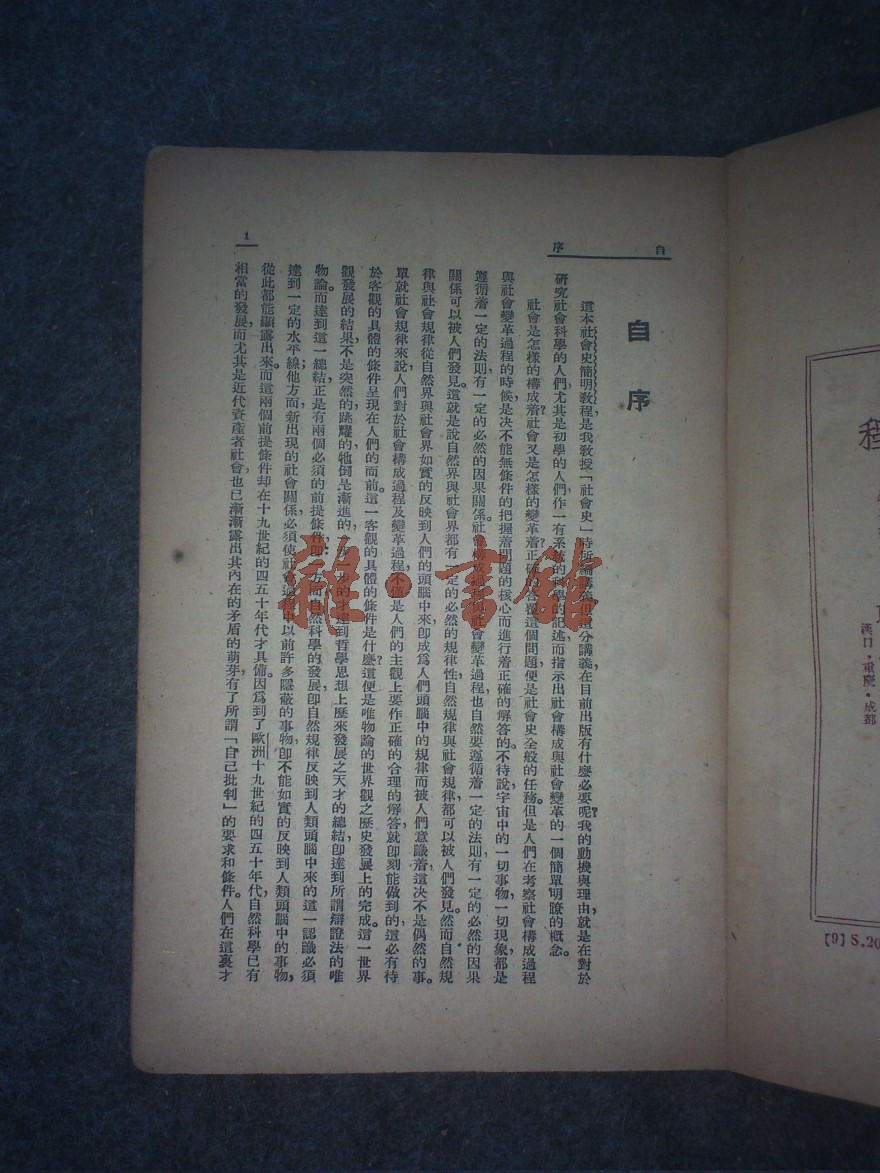 自序
自　序
這本社會史簡明敎程，是我敎授「社會史」時所編講義。但這分講義在目前出版有什麽必要呢？我的動機與理由，就是在對於
研究社會科學的人們，尤其是初學的人們，作一有系統的科學的記述，而指示出社會構成與社會變革的一個簡單明瞭的概念。
社會是怎樣的構成着？社會又是怎樣的變革着？正確的答覆這個問題，便是社會史全般的任務。但是人們在考察社會構成過程
與社會變革過程的時候，是决不能無條件的把握着問題的核心而進行着正確的解答的。不待說，宇宙中的一切事物，一切現象，都是
遵循着一定的法則，有一定的必然的因果關係。社會構成過程與社會變革過程，也自然要遵循着一定的法則，有一定的必然的因果
關係，可以被人們發見。這就是說，自然界與社會界都有一定的必然的規律性，自然規律與社會規律，都可以被人們發見。然而自然規
律與社會規律，從自然界與社會界如實的反映到人們的頭腦中來，卽成爲人們頭腦中的規律，而被人們意識着，這决不是偶然的事。
單就社會規律來說，人們對於社會構成過程及變革過程，不僅是人們的主觀上要作正確的合理的解答就卽刻能做到的，這必有待
於客觀的具體的條件呈現在人們的面前。這一客觀的具體的條件是什麽？這便是唯物論的世界觀之歷史發展上的完成。這一世界
觀發展的結果，不是突然的，跳躍的，牠倒是漸進的，一步一步的才達到哲學思想上歷來發展之天才的總結，卽達到所謂辯證法的唯
物論。而達到這一總結，正是有兩個必須的前提條件，卽一方面，自然科學的發展，卽自然規律反映到人類頭腦中來的這一認識，必須
達到一定的水平線；他方面，新出現的社會關係，必須使社會過程中以前許多隱蔽的事物，卽不能如實的反映到人類頭腦中的事物，
從此都能顯露出來。而這兩個前提條件，却在十九世紀的四五十年代才具備。因爲到了歐洲十九世紀的四五十年代，自然科學已有
相當的發展，而尤其是近代資產者社會，也已漸漸露出其內在的矛盾的萌芽，有了所謂「自己批判」的要求和條件。人們在這裏才
1
程
漢口・重慶・成都
[9] S.20
雜・書館